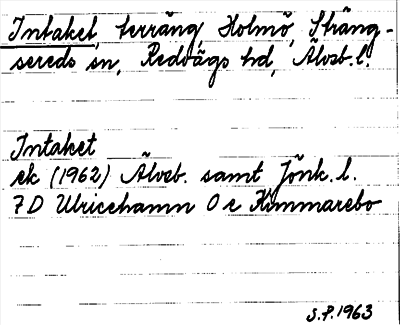 Intaket, terräng, Holmö, Sträng-
sereds sn, Redvägs hd, Älvsb. l.
Intaket
ek (1962) Älvsb. samt Jönk. l.
7 D Ulricehamn 0 e Kimmarebo
S.P. 1963